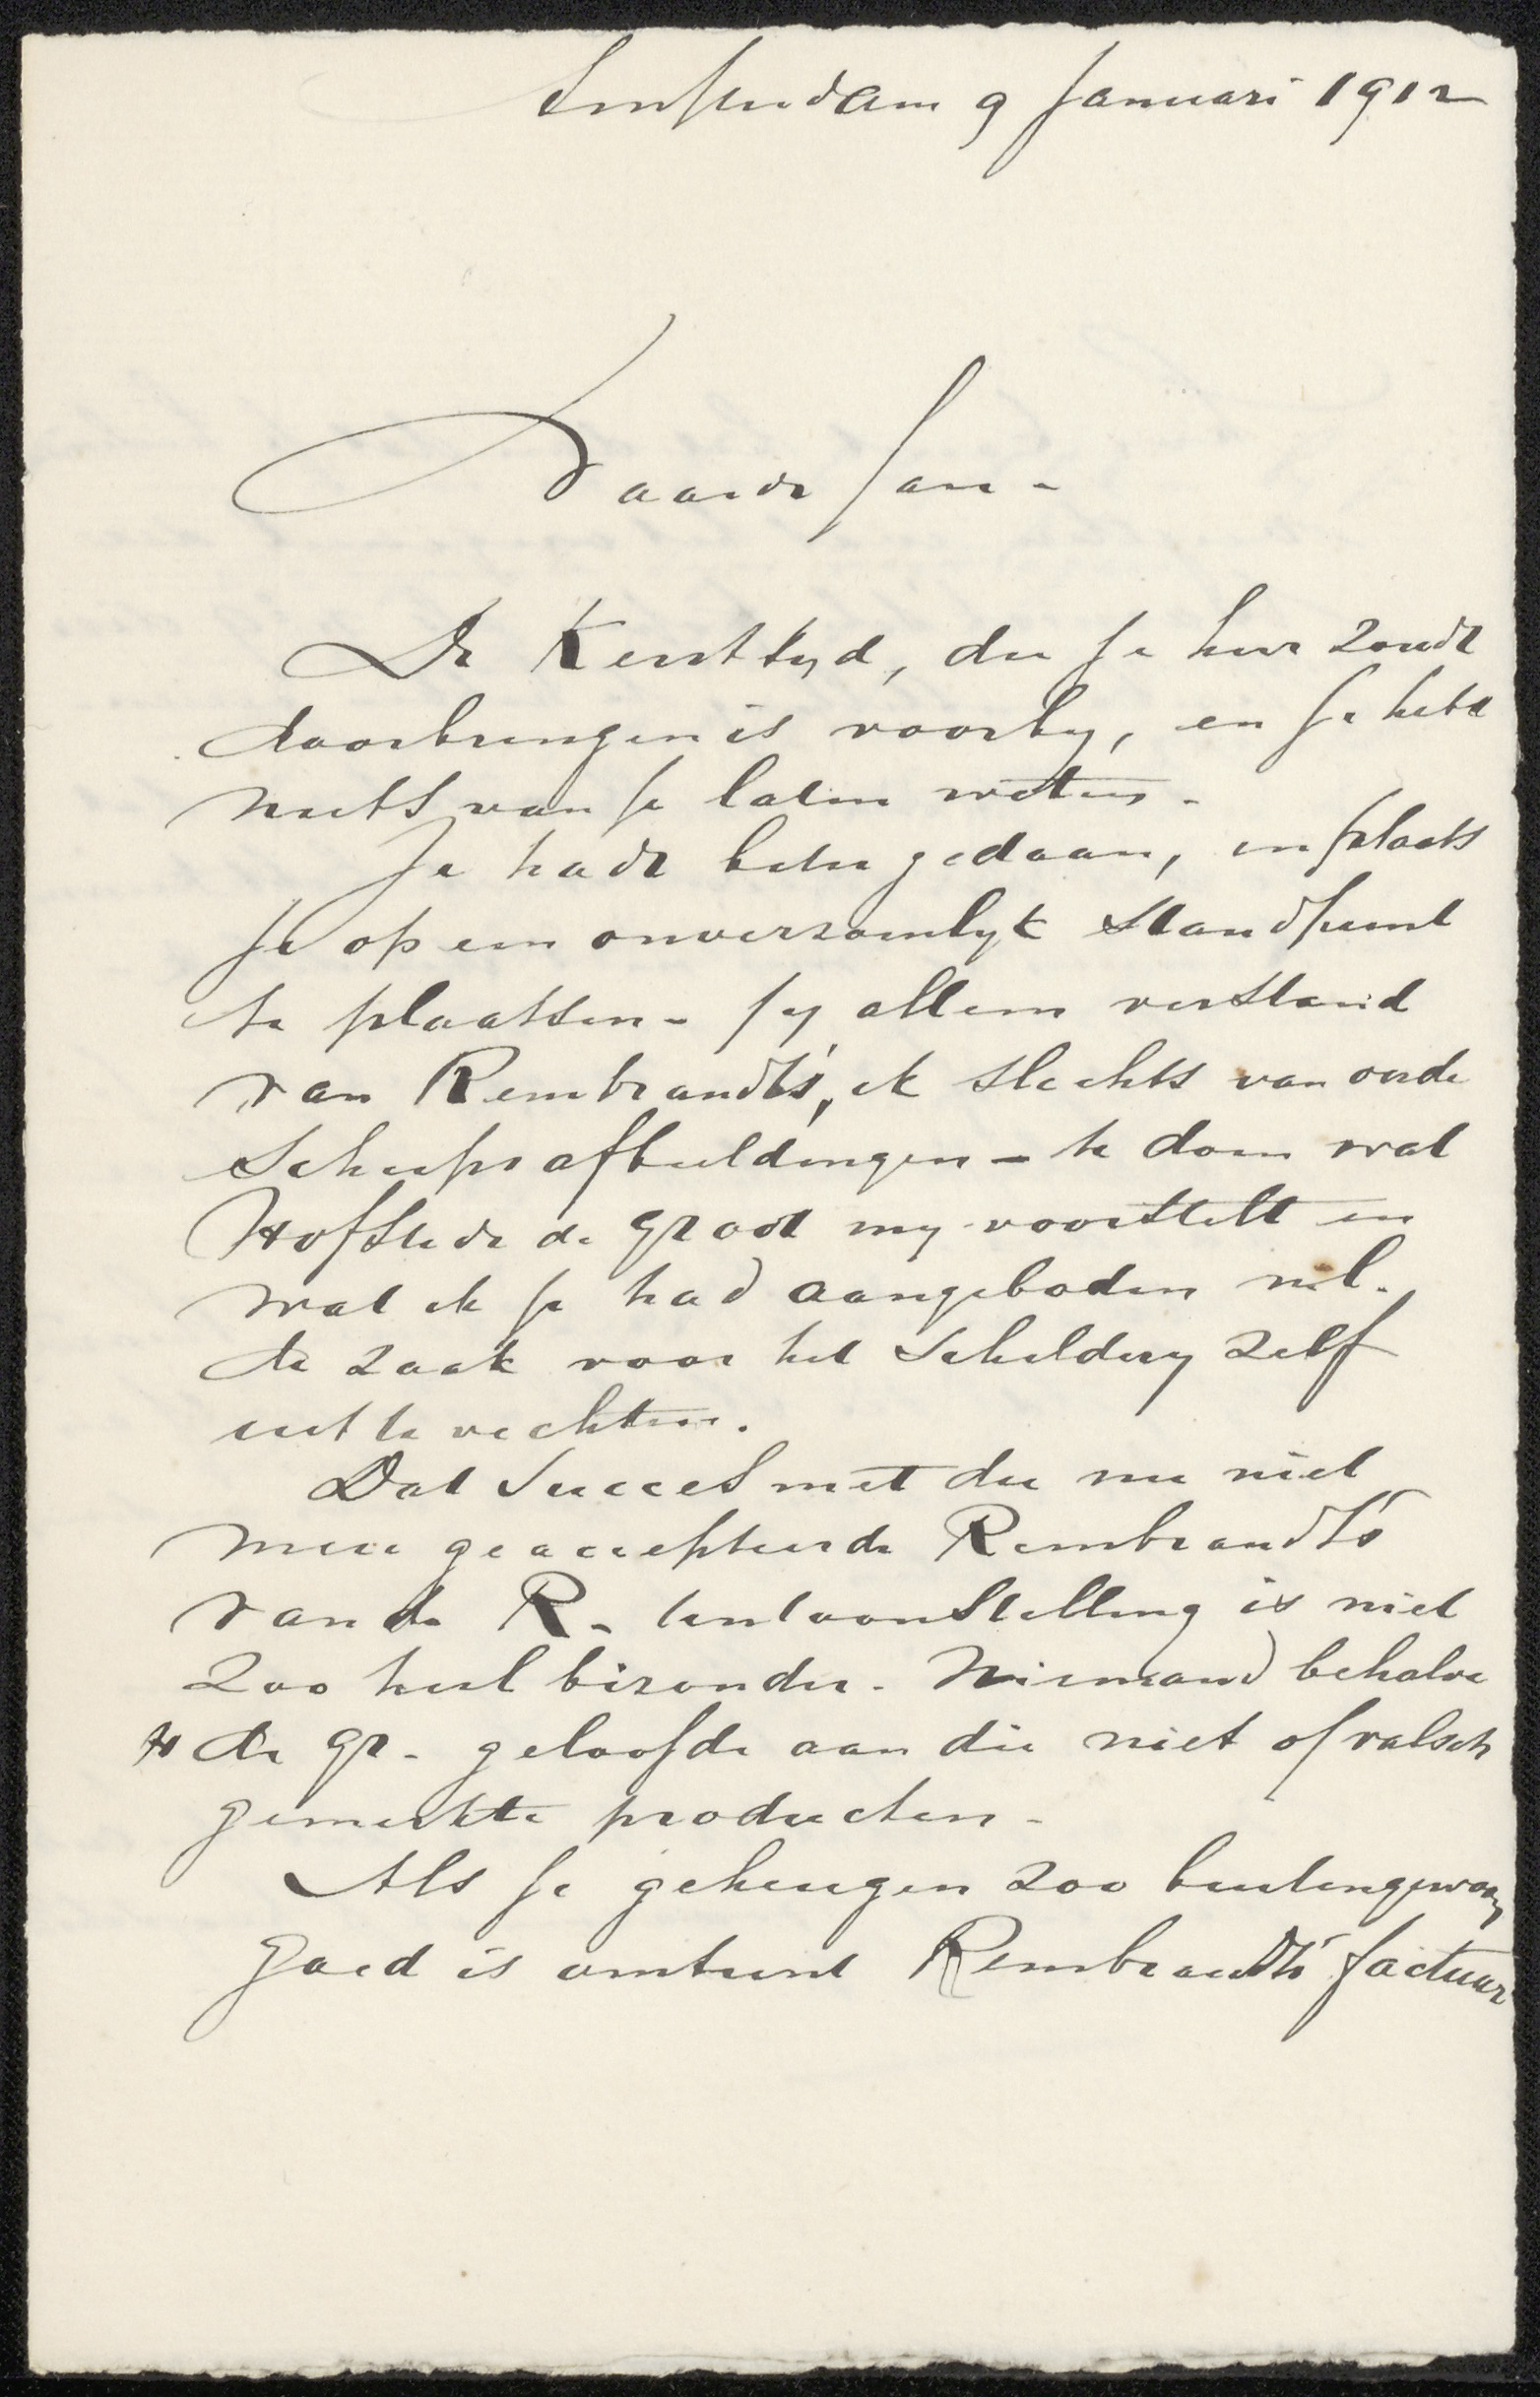 Amsterdam 9 Januari 1912
Waarde Jan -
De Kersttyd, die je hier zoudt
doorbrengen is voorby, en je hebt
niets van je laten weten -
Je hadt beter gedaan, in plaats
je op een onverzoenlyk standpunt
te plaatsen - jy alleen verstand
van Rembrandt's, ik slechts van oude
scheepsafbeeldingen - te doen wat
Hofstede de Groot my voorstelt en
wat ik je had aangeboden nl.
de zaak voor het schildery zelf
uit te vechten.
Dat succes met die nu niet
meer geaccepteerde Rembrandt's
van de R - tentoonstelling is niet
zoo heel bizonder - Niemand behalve
H de Gr - geloofde aan die niet of valsch
gemerkte producten -
Als je geheugen zoo buitengewoon
goed is omtrent Rembrandts' factuur